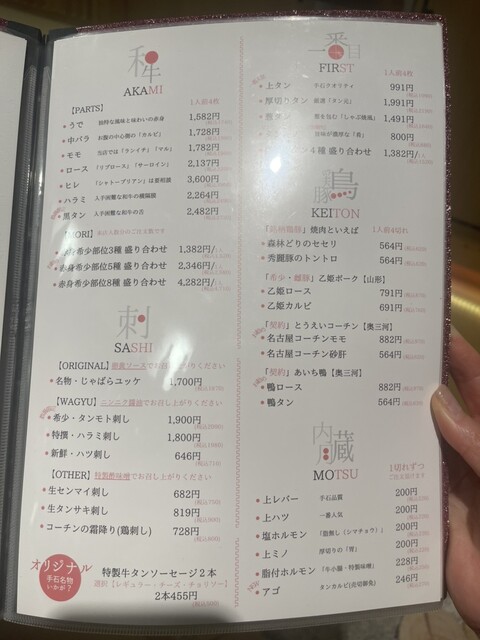 和牛
AKAMI
【PARTS】
1人前4枚
うで 独特な風味と味わいの赤身 1,582円/
中バラ お腹の中心側の「カルビ」 1,728円
モモ 当店では「ランイチ」「マル」 1,782円
ロース 「リブロース」「サーロイン」 2,137円
ヒレ 「シャトーブリアン」は要相談 3,600円
ハラミ 入手困難な和牛の横隔膜 2,264円
黒タン 入手困難な和牛の舌 2,482円
【MORI】
赤身希少部位3種 盛り合わせ 1,382円/
赤身希少部位5種 盛り合わせ 2,346円/
赤身希少部位8種 盛り合わせ 4,282円/
刺
SASHI
【ORIGINAL】でお召し上がりください
名物・じゃばらユッケ 1,700円
【WAGYU】ニンニク醤油でお召し上がりください
希少・タンモト刺し 1,900円
特撰・ハラミ刺し 1,800円
新鮮・ハツ刺し 646円
【OTHER】特製酢味噌でお召し上がりください
生センマイ刺し 682円
生タンサキ刺し 819円
コーチンの霜降り(鶏刺し) 728円
オリジナル
手石名物
いかが?
特製牛タンソーセージ2本
選択【レギュラー・チーズ・チョリソー】
2本455円
一番目
FIRST
1人前4枚
上タン 手石クオリティ 991円
厚切りタン 厳選「タン元」 1,991円
葱を包む「しゃぶ焼風」 1,491円
旨味が濃厚な「希」 800円
4種 盛り合わせ 1,382円/
豚鳥
KEITON
焼肉といえば 1人前4切れ
森林どりのセセリ 564円
秀麗豚のトントロ 564円
「希少・雌豚」乙姫ポーク【山形】
乙姫ロース 791円
乙姫カルビ 691円
「契約」とうえいコーチン【奥三河】
名古屋コーチンモモ 882円
名古屋コーチン砂肝 564円
「契約」あいち鴨【奥三河】
鴨ロース 882円
鴨タン 564円
内臓
MOTSU
1切れずつ
ご注文頂けます
上レバー 手石品質 200円
上ハツ 一番人気 200円
塩ホルモン 「脂無し（シマチョウ）」 200円
上ミノ 厚切りの「胃」 200円
脂付ホルモン 「牛小腸・特製味噌」 228円
アゴ タンカルビ(売切御化) 246円